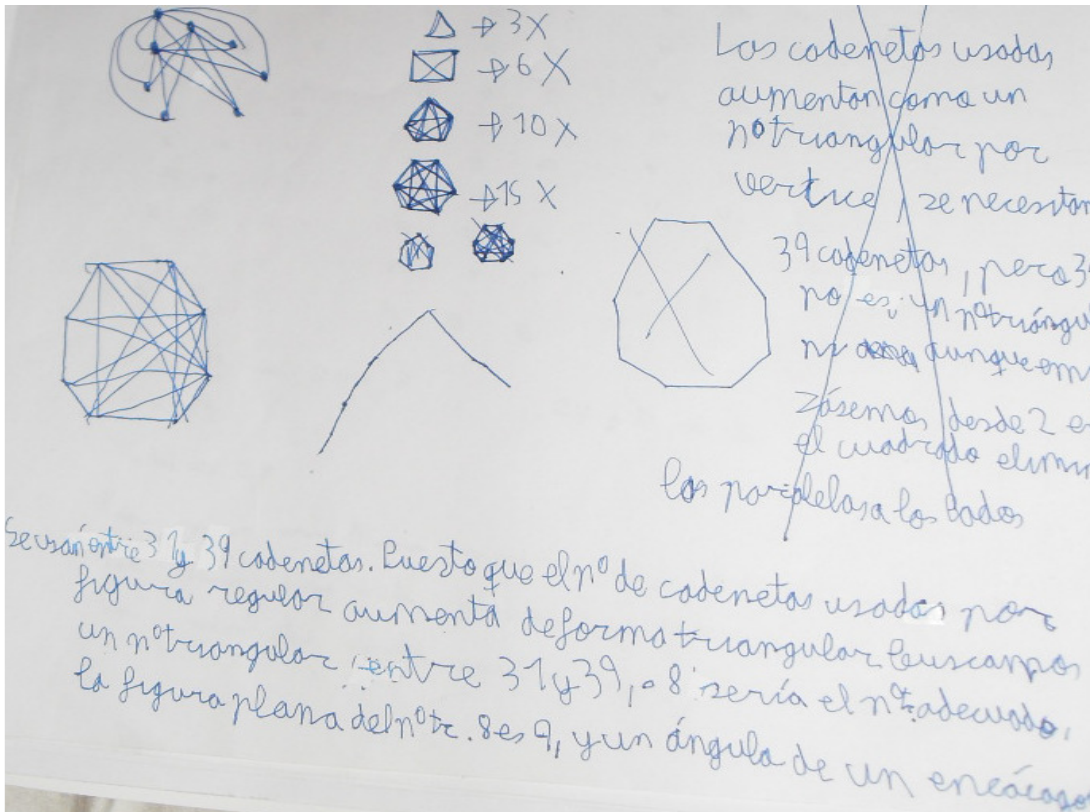 → 3X
→ 6 X
→ 10 X
→ 15 X
Las cadenetas usadas
aumentan como un
nº triangular por
vertice, se necesitan
39 cadenetas, pero 3
no es un nº triángu
aunque em
zásemos desde 2 e
el cuadrado elimi
las paralelas a los lados
Se usan entre 31 y 39 cadenetas. Puesto que el nº de cadenetas usadas por
figura regular aumenta de forma triangular buscamos
un nº triangular entre 31 y 39, 8 sería el nº adecuado.
la figura plana del nº tr. 8 es 9, y un ángulo de un eneágono